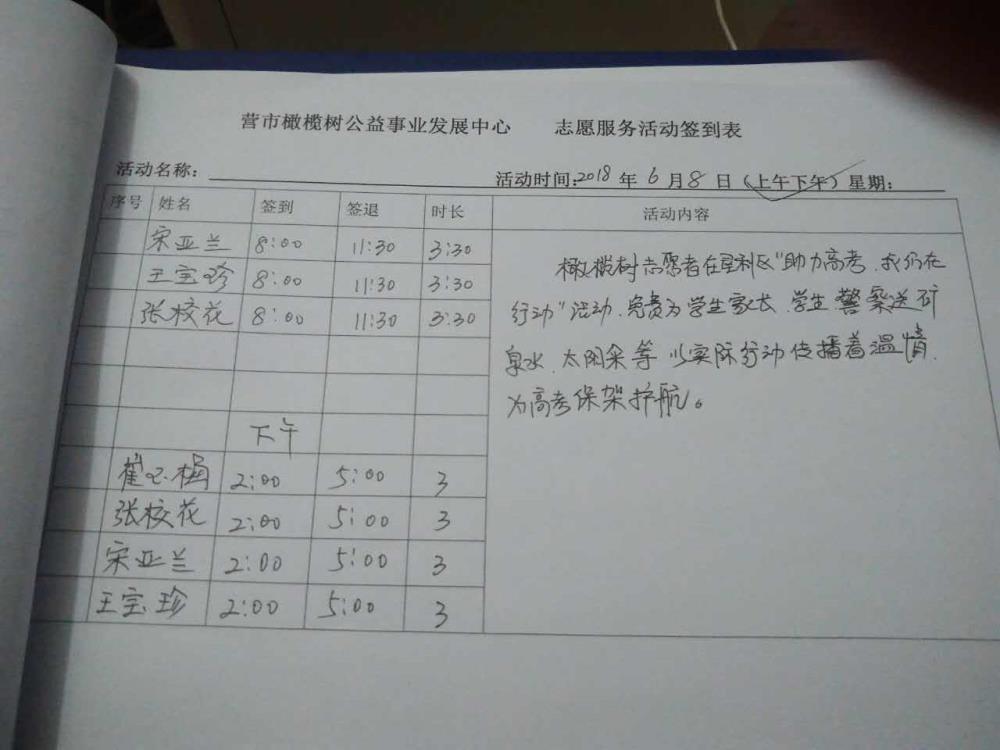 营市橄榄树公益事业发展中心 志愿服务活动签到表
活动名称： 活动时间:2018年6月8日（上午下午）星期：
序号 姓名 签到 签退 时长 活动内容
宋亚兰 8:00 11:30 3:30
王宝珍 8:00 11:30 3:30
张校花 8:00 11:30 3:30
下午
崔 梅 2:00 5:00 3
张校花 2:00 5:00 3
宋亚兰 2:00 5:00 3
王宝珍 2:00 5:00 3
橄榄树志愿者在垦利区"助力高考，我们在
行动"活动，免费为学生家长、学生、警察送矿
泉水、太阳伞等，以实际行动传播着温情，
为高考保架护航。